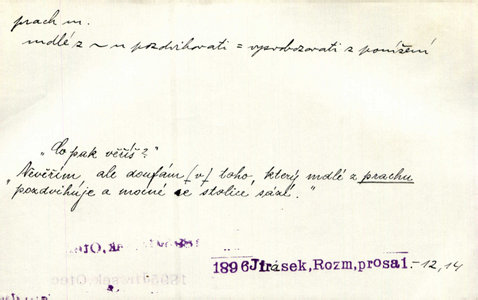 prach m.
mdlé z ~u pozdvihovati = vysvobozovati z ponížení
„Co pak věříš?"
„Nevěřím, ale doufám (v) toho, který mdlé z prachu
pozdvihuje a mocné se stolice sází."
1896 Jirásek, Rozm, prosa1. -12,14